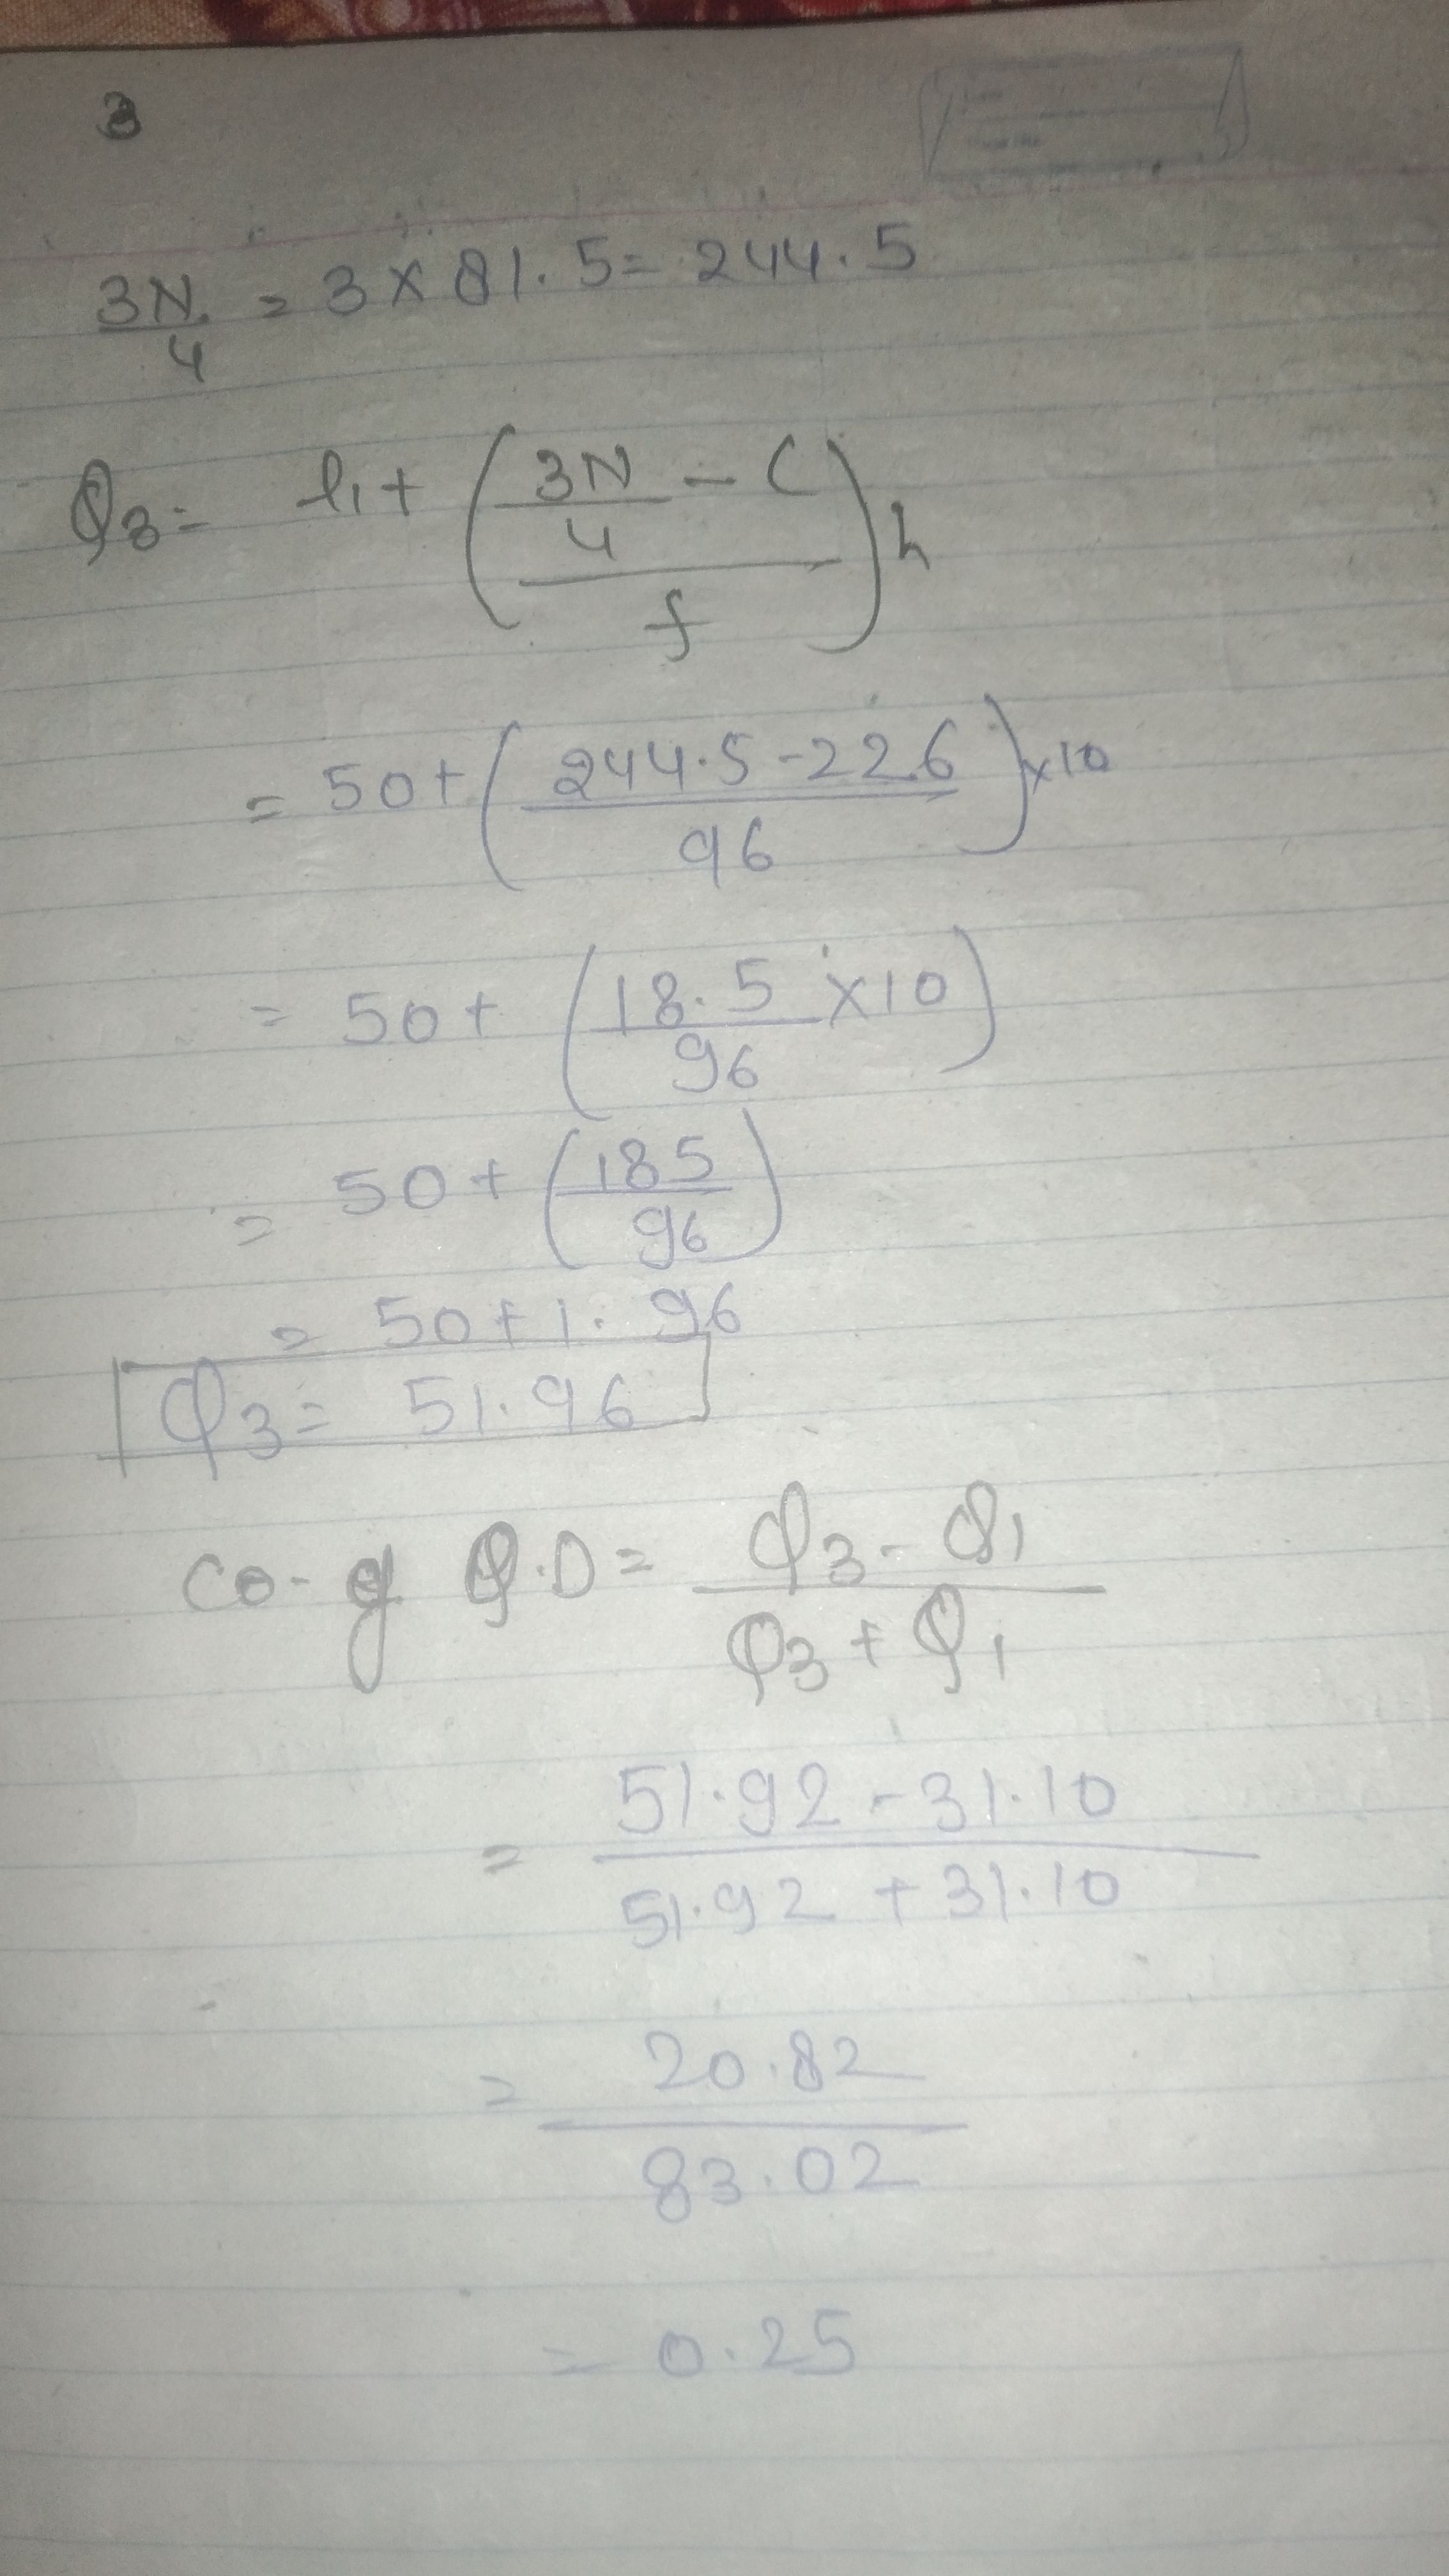 3
3N/4 = 3 × 81.5 = 244.5
Q3 = l1 + ((3N/4 - C)/f) h
= 50 + ((244.5 - 226)/96) × 10
= 50 + (18.5/96 × 10)
= 50 + (185/96)
= 50 + 1.96
Q3 = 51.96
co- of Q.D = (Q3 - Q1)/(Q3 + Q1)
= (51.92 - 31.10)/(51.92 + 31.10)
= 20.82/83.02
= 0.25